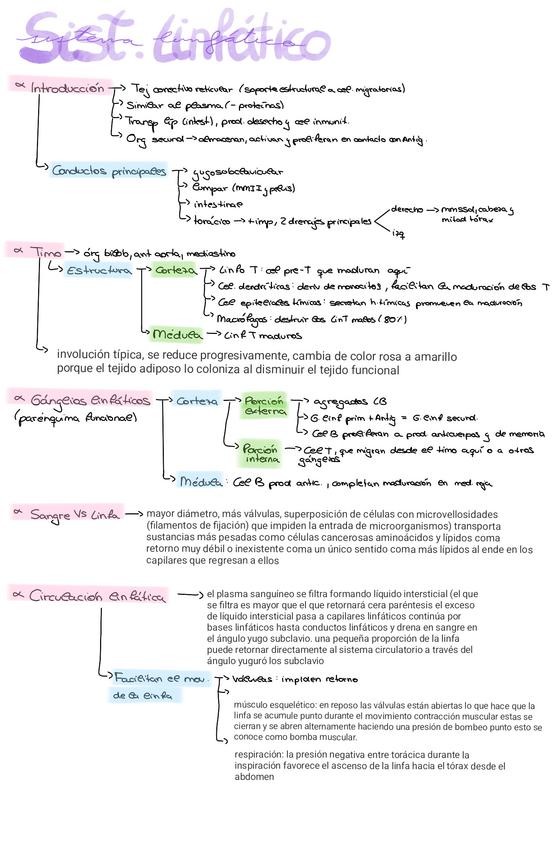 Sist. Linfático
sistema linfático
∝ Introducción → Tej conectivo reticular (soporte estructural a cel. migratorias)
→ Similar al plasma (- proteínas)
→ Transp lip (intest), prod. desecho y cel inmunit.
→ Org secund → almacenan, activan y proliferan en contacto con Antig.
→ Conductos principales → yugosubclavicular
→ lumpar (mmII y pelvis)
→ intestinal
→ torácico → + imp, 2 drenajes principales
derecho → mmssd, cabeza y
mitad tórax
izq
∝ Timo → órg bilob, ant aorta, mediastino
→ Estructura → Corteza → Linfo T: cel pre-T que maduran aquí
→ Cel. dendríticas: deriv de monocitos, facilitan la maduración de los T
→ Cel epiteliales tímicas: secretan h. tímicas promueven la maduración
→ Macrófagos: destruir los LinT malos (80%)
→ Médula → Linf T maduros
involución típica, se reduce progresivamente, cambia de color rosa a amarillo
porque el tejido adiposo lo coloniza al disminuir el tejido funcional
∝ Gánglios linfáticos → Corteza → Porción
externa → agregados LB
(parénquima funcional)
→ G linf prim + Antig = G linf secund.
→ Cel B proliferan a prod anticuerpos y de memoria
→ Porción
interna → Cel T, que migran desde el timo aquí o a otros
gánglios
→ Médula: Cel B prod antic., completan maduración en med. roja
∝ Sangre Vs Linfa → mayor diámetro, más válvulas, superposición de células con microvellosidades
(filamentos de fijación) que impiden la entrada de microorganismos) transporta
sustancias más pesadas como células cancerosas aminoácidos y lípidos coma
retorno muy débil o inexistente coma un único sentido coma más lípidos al ende en los
capilares que regresan a ellos
∝ Circulación linfática → el plasma sanguíneo se filtra formando líquido intersticial (el que
se filtra es mayor que el que retornará cera paréntesis el exceso
de líquido intersticial pasa a capilares linfáticos continúa por
bases linfáticos hasta conductos linfáticos y drena en sangre en
el ángulo yugo subclavio. una pequeña proporción de la linfa
puede retornar directamente al sistema circulatorio a través del
ángulo yuguró los subclavio
→ Facilitan el mov.
de la linfa → Válvulas: impiden retorno
músculo esquelético: en reposo las válvulas están abiertas lo que hace que la
linfa se acumule punto durante el movimiento contracción muscular estas se
cierran y se abren alternamente haciendo una presión de bombeo punto esto se
conoce como bomba muscular.
respiración: la presión negativa entre torácica durante la
inspiración favorece el ascenso de la linfa hacia el tórax desde el
abdomen